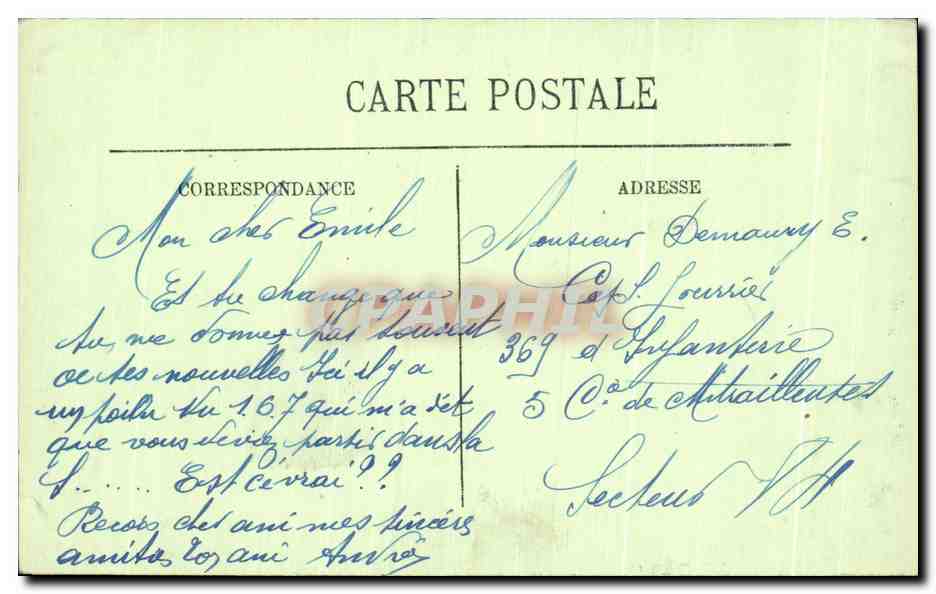 CARTE POSTALE
CORRESPONDANCE
Mon cher Emile
Es tu change que
tu me donnes pas souvent
de tes nouvelles Ici il y a
un poilu du 167 qui m'a dit
que vous devie partir dans la
S....... Est ce vrai??
Recois cher ami mes sincères
amités ami André
ADRESSE
Monsieur Demaury E.
Cap. Fourrier
369 d'Infanterie
5 Cie de Mitrailleuses
Secteur
CPAPHIL